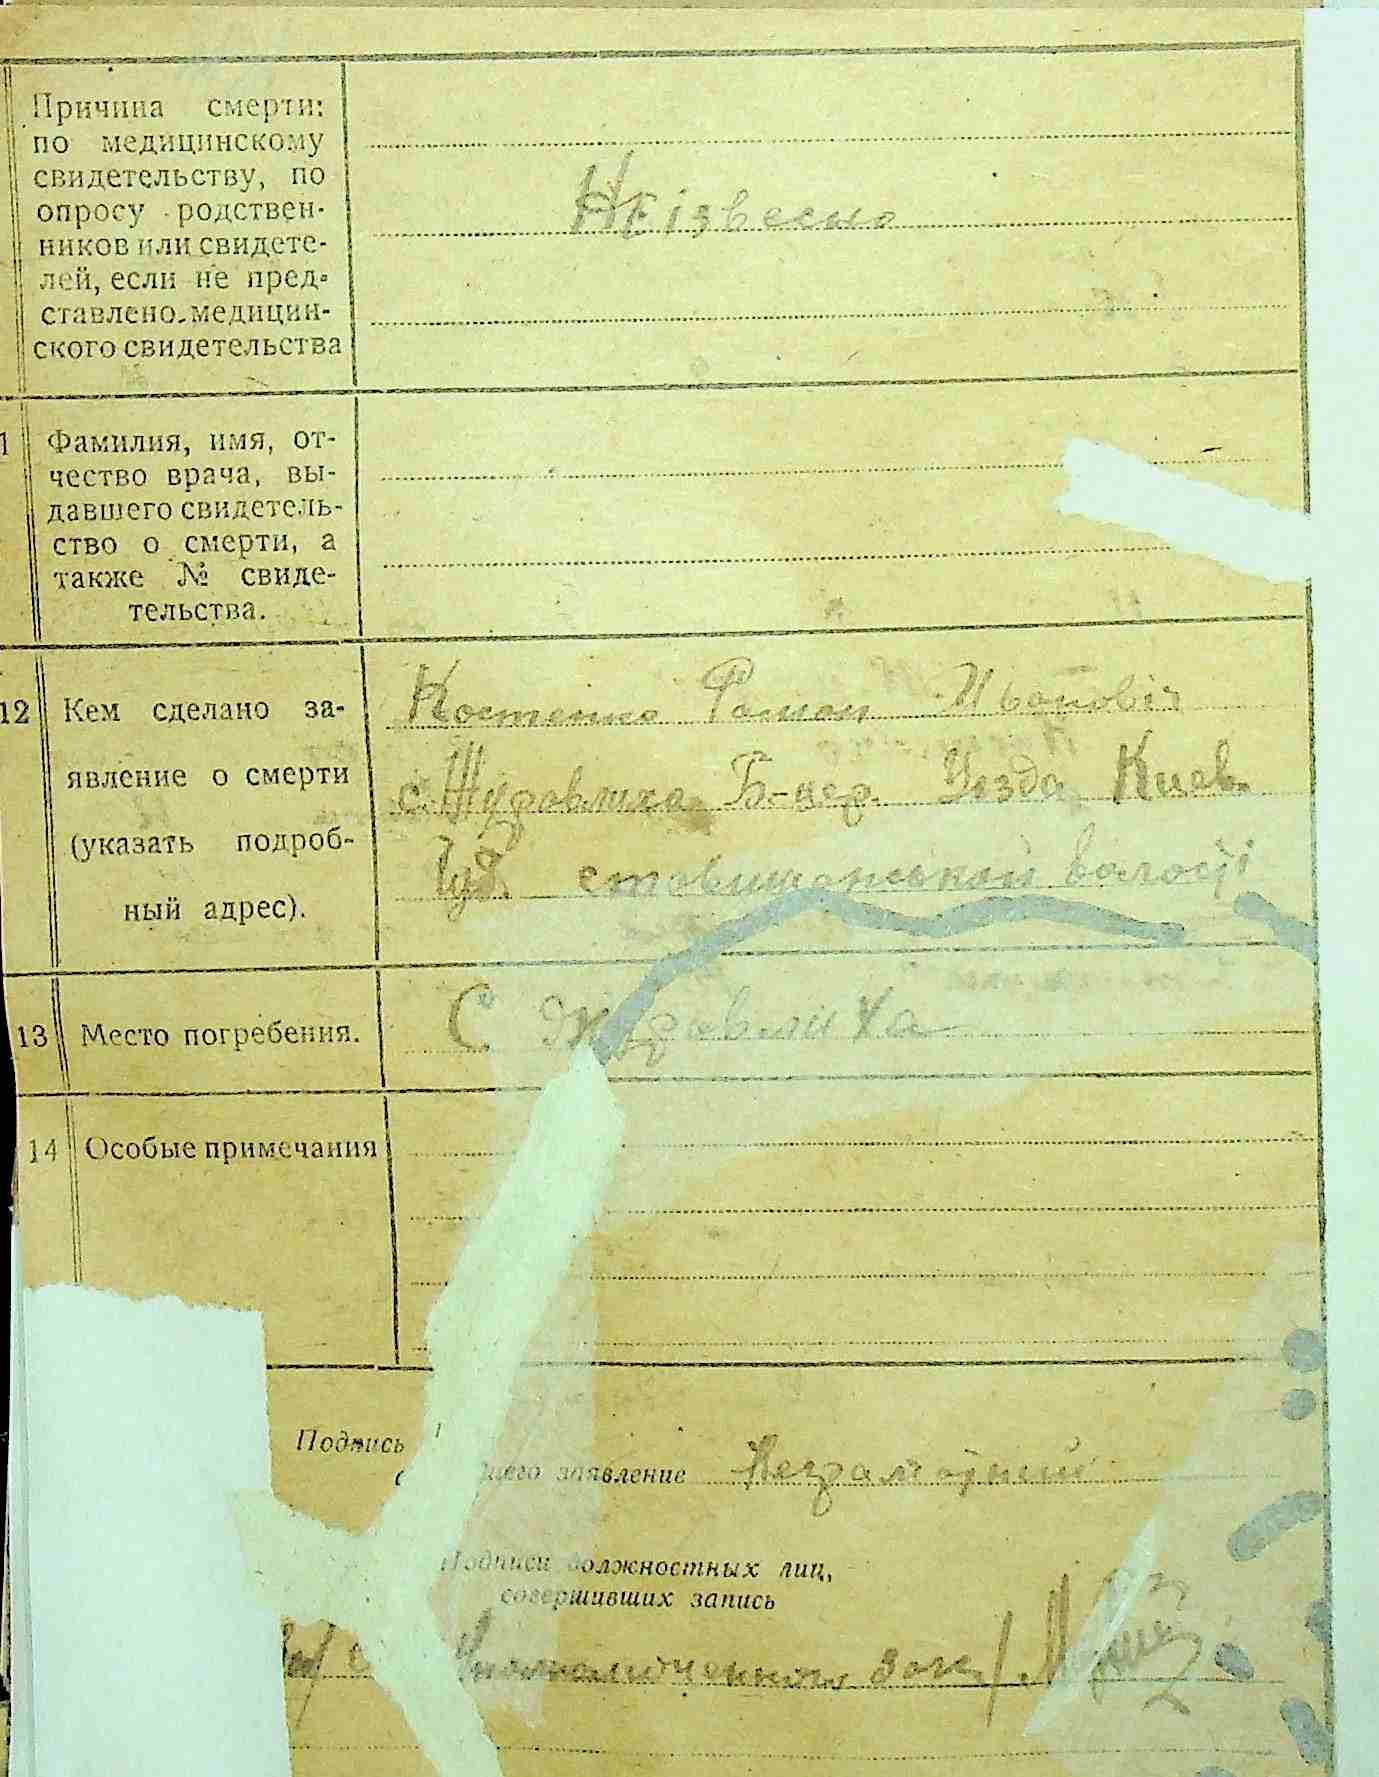 Причина смерти:
по медицинскому
свидетельству, по
опросу родствен-
ников или свидете-
лей, если не пред-
ставлено медицин-
ского свидетельства
Неізвесно
1 Фамилия, имя, от-
чество врача, вы-
давшего свидетель-
ство о смерти, а
также № свиде-
тельства.
12 Кем сделано за-
явление о смерти
(указать подроб-
ный адрес).
Костенко Роман Ивановіч
с. Журавлиха Б-цер. Уезда Киев.
Губ.
13 Место погребения.
С Журавлиха
14 Особые примечания
Подпись
шего заявление Неграмотний
Подписи должностных лиц,
совершивших запись